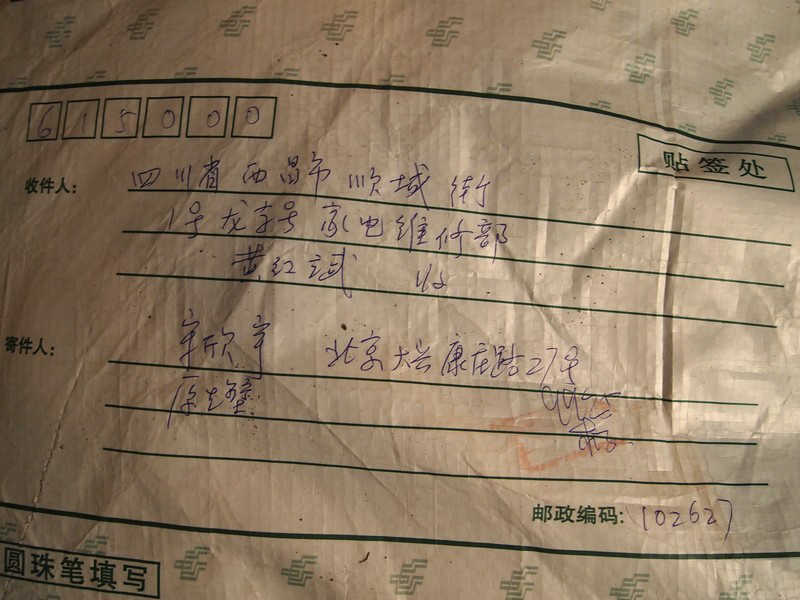 615000
贴签处
收件人: 四川省西昌市顺城街
1号龙字号家电维修部
黄红斌 收
寄件人: 宋欣宇 北京大兴康庄路27号
邮政编码: 102627
圆珠笔填写